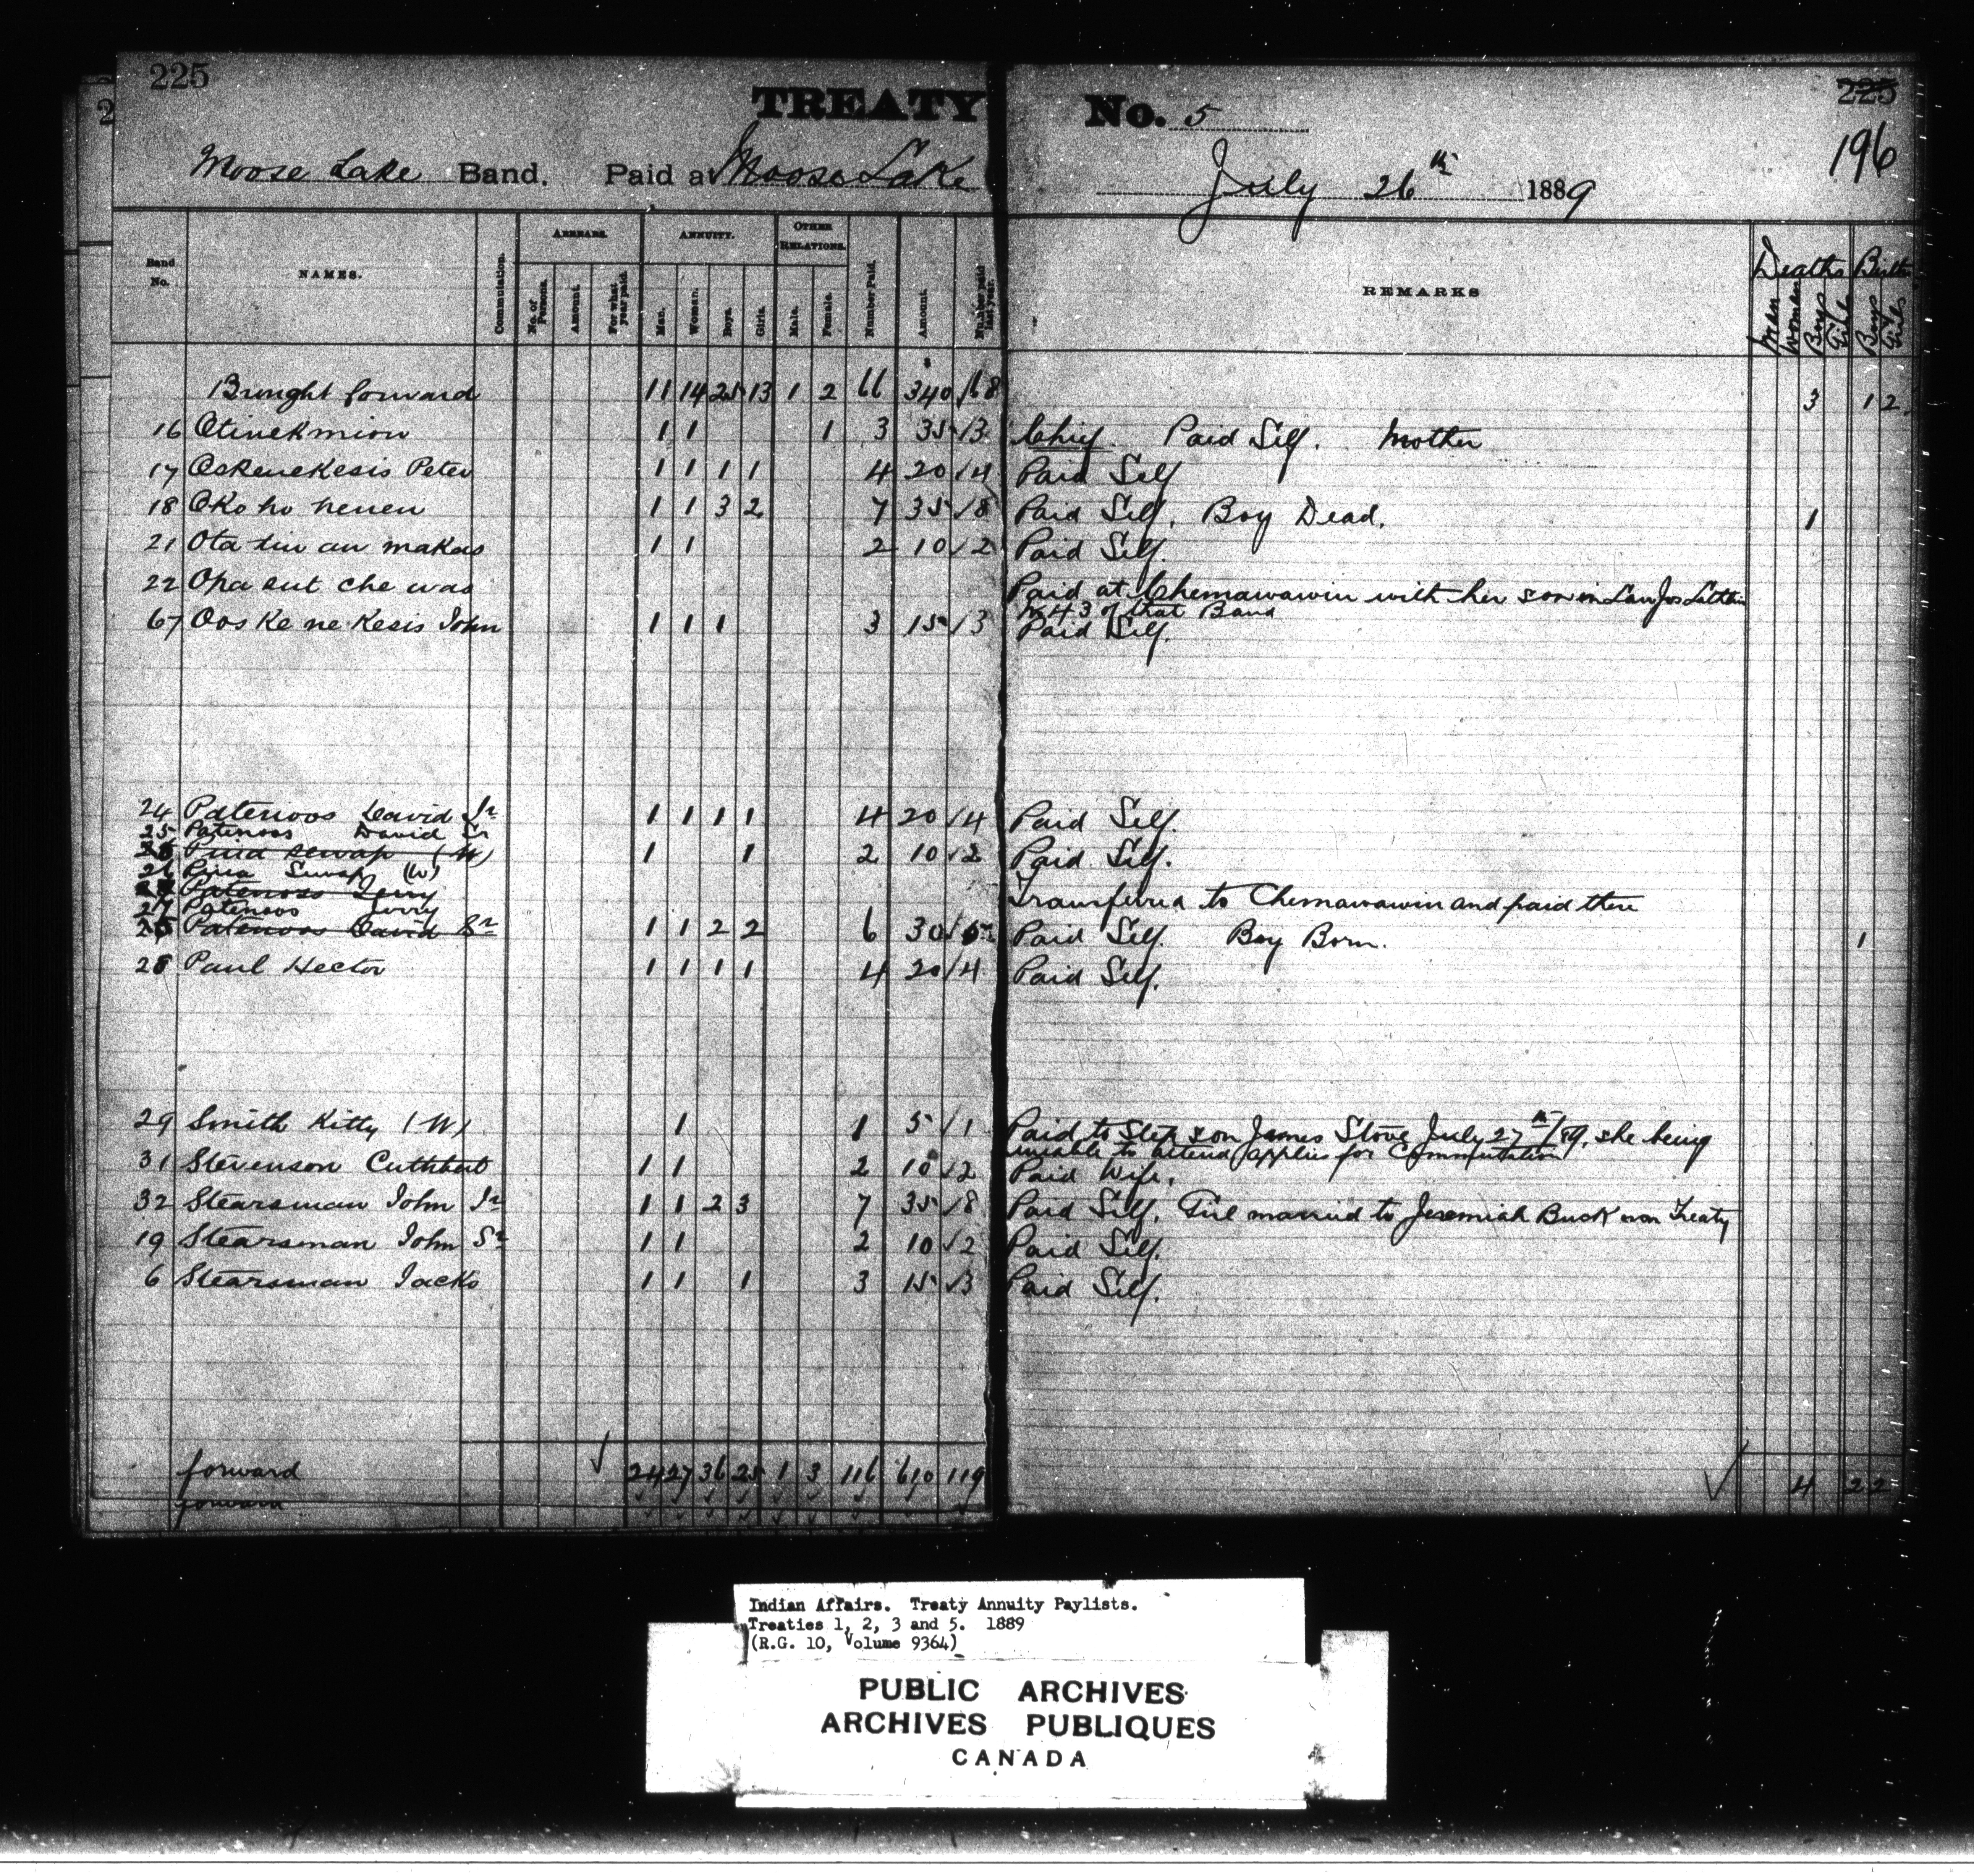 225
TREATY No. 5
225
196
2
Moose Lake Band. Paid at Moose Lake July 26th 1889
Band No. NAMES. Commutation. ARREARS. No. of Persons. Amount. For what year paid. ANNUITY. Men. Women. Boys. Girls. OTHER RELATIONS. Male. Female. Number Paid. Amount. Number paid last year. REMARKS Deaths Men Women Boys Girls Births Boys Girls
Brought forward 11 14 25 13 1 2 66 340 / 68 3 1 2
16 Otinekmion 1 1 1 3 35 / 3 Chief. Paid Self. Mother
17 Oskenekesis Peter 1 1 1 1 4 20 / 4 Paid Self
18 Oko ho nenen 1 1 3 2 7 35 / 8 Paid Self. Boy Dead. 1
21 Ota tin au makas 1 1 2 10 / 2 Paid Self.
22 Opa sut che was Paid at Chemawawin with her son in Law Jos
No 43 of that Band
67 Oos ke ne kesis John 1 1 1 3 15 / 3 Paid Self.
24 Patenoos David Jr 1 1 1 1 4 20 / 4 Paid Self.
25 Patenoos David Sr
26 (W) 1 1 2 10 / 2 Paid Self.
26 (W)
27 Patenoos Jerry Transferred to Chemawawin and paid there
27 Patenoos Jerry
25 Patenoos David Sr 1 1 2 2 6 30 / 5 Paid Self. Boy Born. 1
28 Paul Hector 1 1 1 1 4 20 / 4 Paid Self.
29 Smith Kitty (W) 1 1 5 / 1 Paid to Step son James Stove July 27th/89. she being
unable to attend applies for Commutation
31 Stevenson Cuthbert 1 1 2 10 / 2 Paid Wife.
32 Stearsman John Jr 1 1 2 3 7 35 / 8 Paid Self. Girl married to Jeremiah Buck non Treaty
19 Stearsman John Sr 1 1 2 10 / 2 Paid Self.
6 Stearsman Jacko 1 1 1 3 15 / 3 Paid Self.
forward 24 27 36 25 1 3 116 610 119 4 2 2
forward
Indian Affairs. Treaty Annuity Paylists.
Treaties 1, 2, 3 and 5. 1889
(R.G. 10, Volume 9364)
PUBLIC ARCHIVES
ARCHIVES PUBLIQUES
CANADA